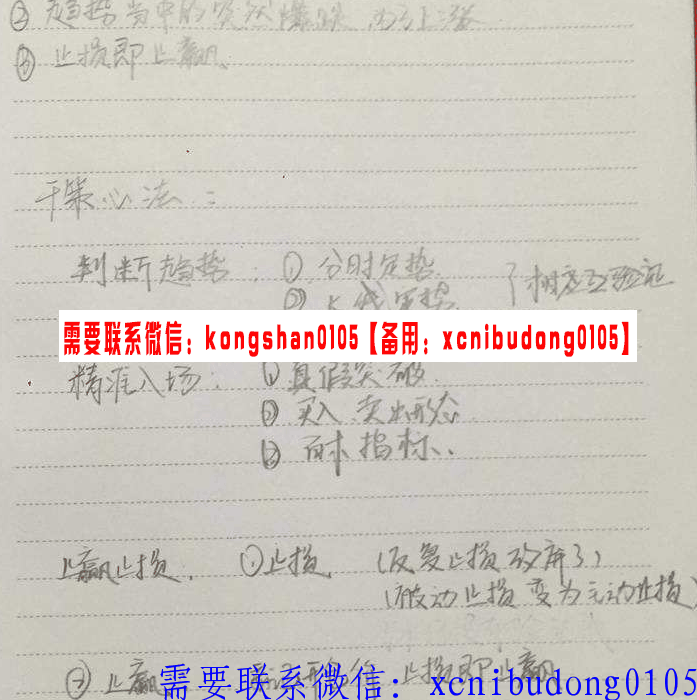 ② 趋势当中的突然爆跌
③ 止损即止赢
干货心法：
判断趋势：① 分时定势
② K线定势 相应互验证
需要联系微信：kongshan0105【备用：xcnibudong0105】
精准入场：① 真假突破
② 买入 卖出形态
③ 指标
止赢止损 ①止损 (反复止损放弃了)
(被动止损 变为主动止损)
② 止赢 止损即止赢
需要联系微信：xcnibudong0105